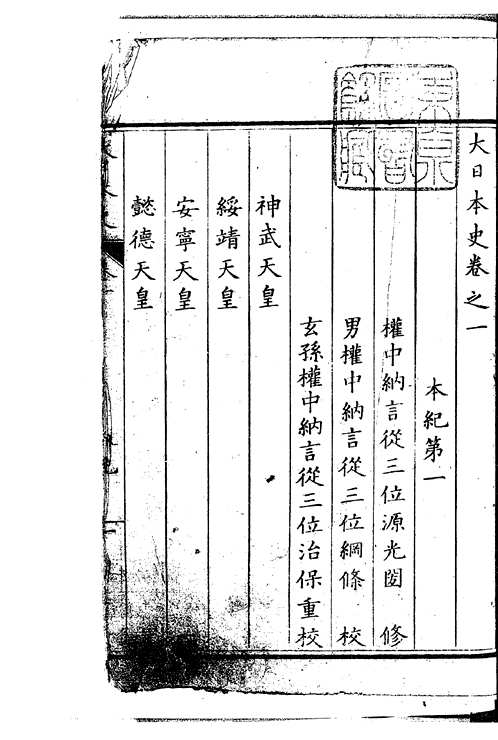 大日本史卷之一
本紀第一
權中納言從三位源光圀 修
男權中納言從三位綱條 校
玄孫權中納言從三位治保重校
神武天皇
綏靖天皇
安寧天皇
懿德天皇